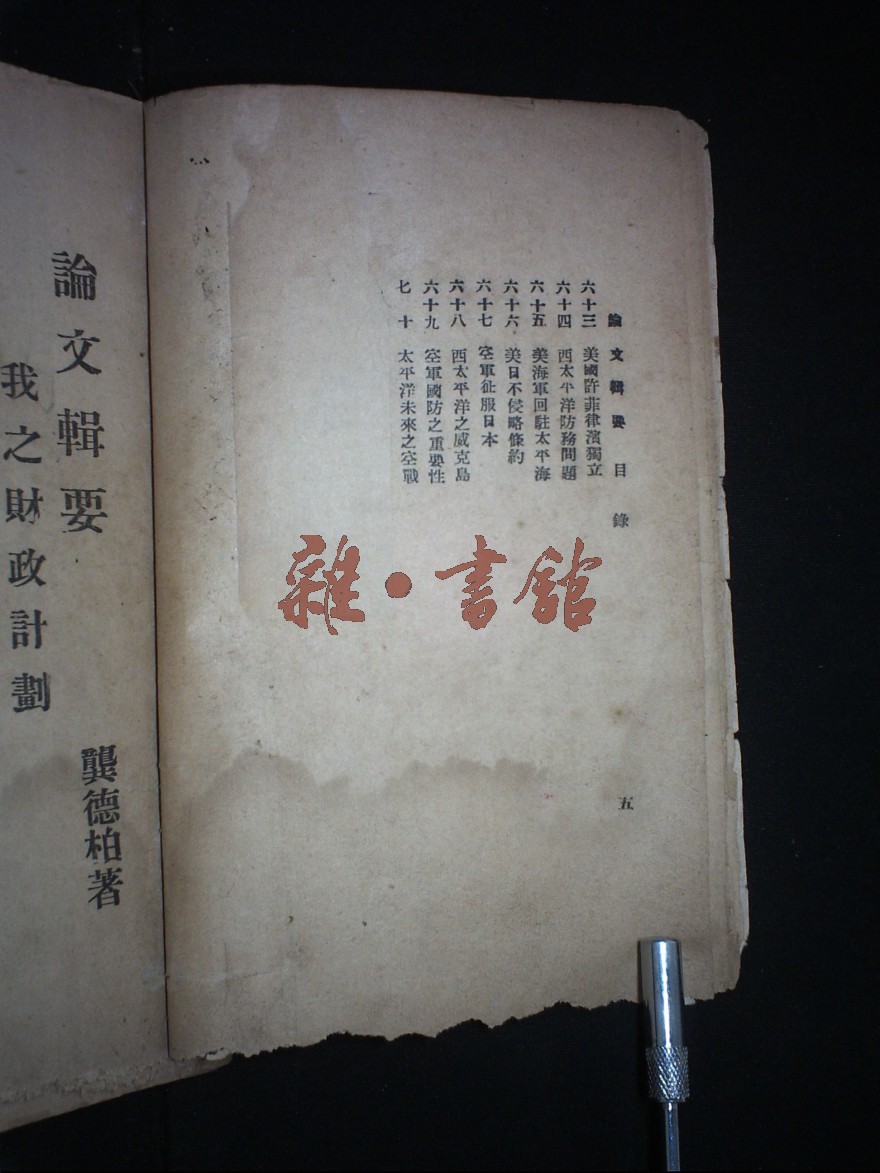 論文輯要目錄
六十三 美國許菲律濱獨立
六十四 西太平洋防務問題
六十五 美海軍回駐太平海
六十六 美日不侵略條約
六十七 空軍征服日本
六十八 西太平洋之威克島
六十九 空軍國防之重要性
七十 太平洋未來之空戰
五
論文輯要
我之財政計劃
龔德柏著
雜·書館